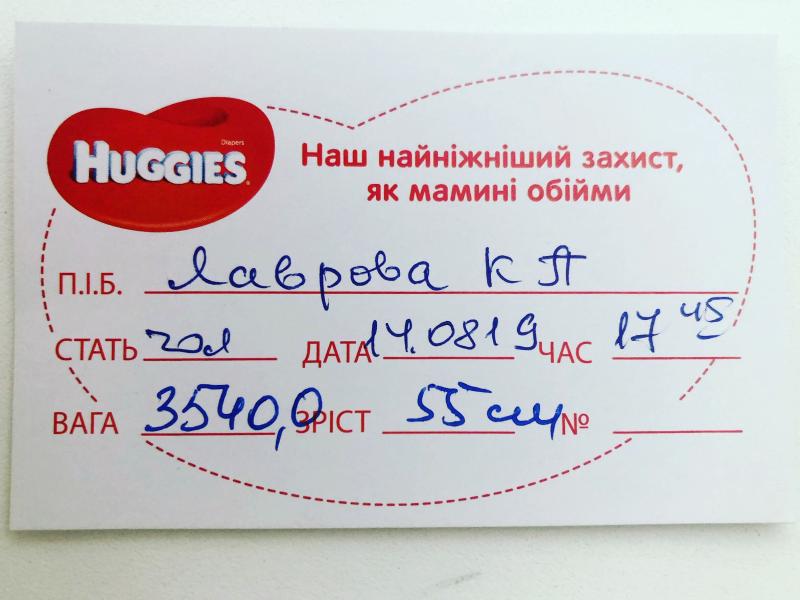 Diapers
HUGGIES®
Наш найніжніший захист,
як мамині обійми
П.І.Б. Лаврова К П
СТАТЬ чол ДАТА 14.0819 ЧАС 17 45
ВАГА 3540,0 ЗРІСТ 55 см №